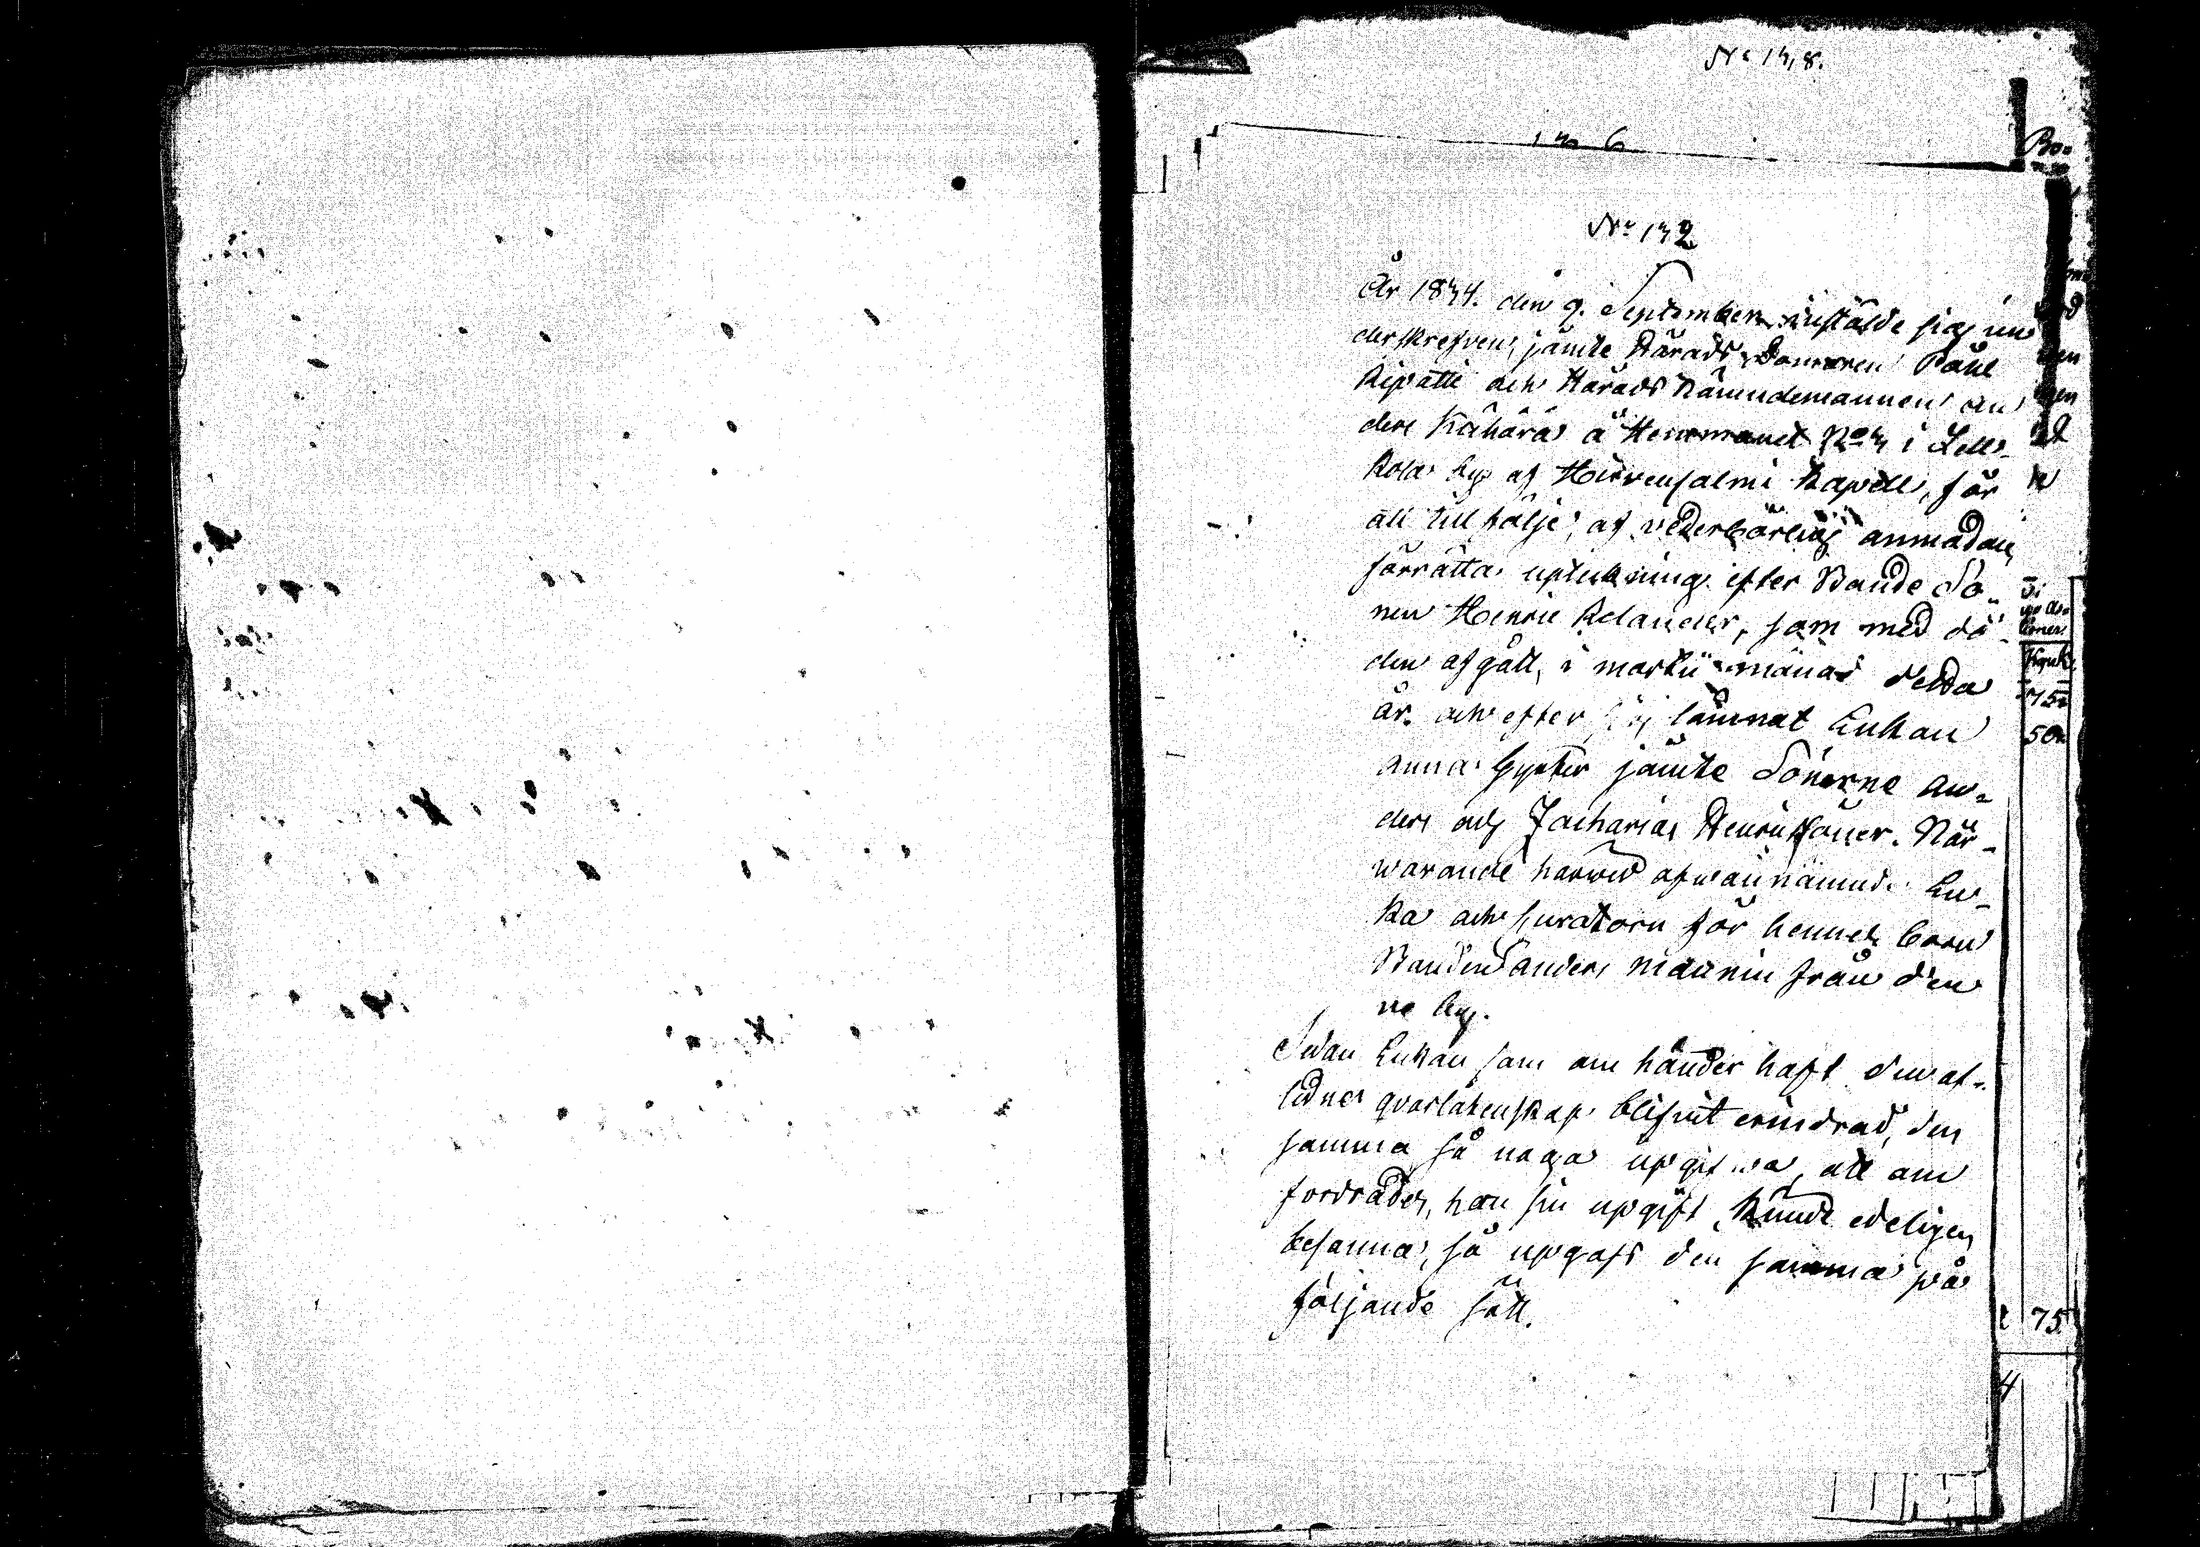 År 1834. den 9. September instälde sig un
derskrefven, jämte Härads Domaren Påhl
Ripatti och Härads Nämndemannen An
ders Kähärä å Hemmanet No 4 i Lell-
kola by af Hirvensalmi Kapell, för
att till följe af vederbörlig anmodan
förrätta upteckning efter Bonde So-
nen Henric Relander, som med dö-
den afgått i martii månad detta
år och efter sig lämnat Enkan
Anna jämte Sönerne An-
ders och Zacharias Henricssöner. När-
warande härwid ofwannämnde En-
ka och Curatorn för hennes barn
Bonden Anders Mannin från den
ne by.
Sedan Enkan som om händer haft den af-
lidnes qvarlåtenskap blifvit erindrad, den
samma så noga upgifwa, att om
fordrades, hon sin upgift kunde edeligen
besanna, så upgafs den samma på
följande sätt.
75
50
75
4